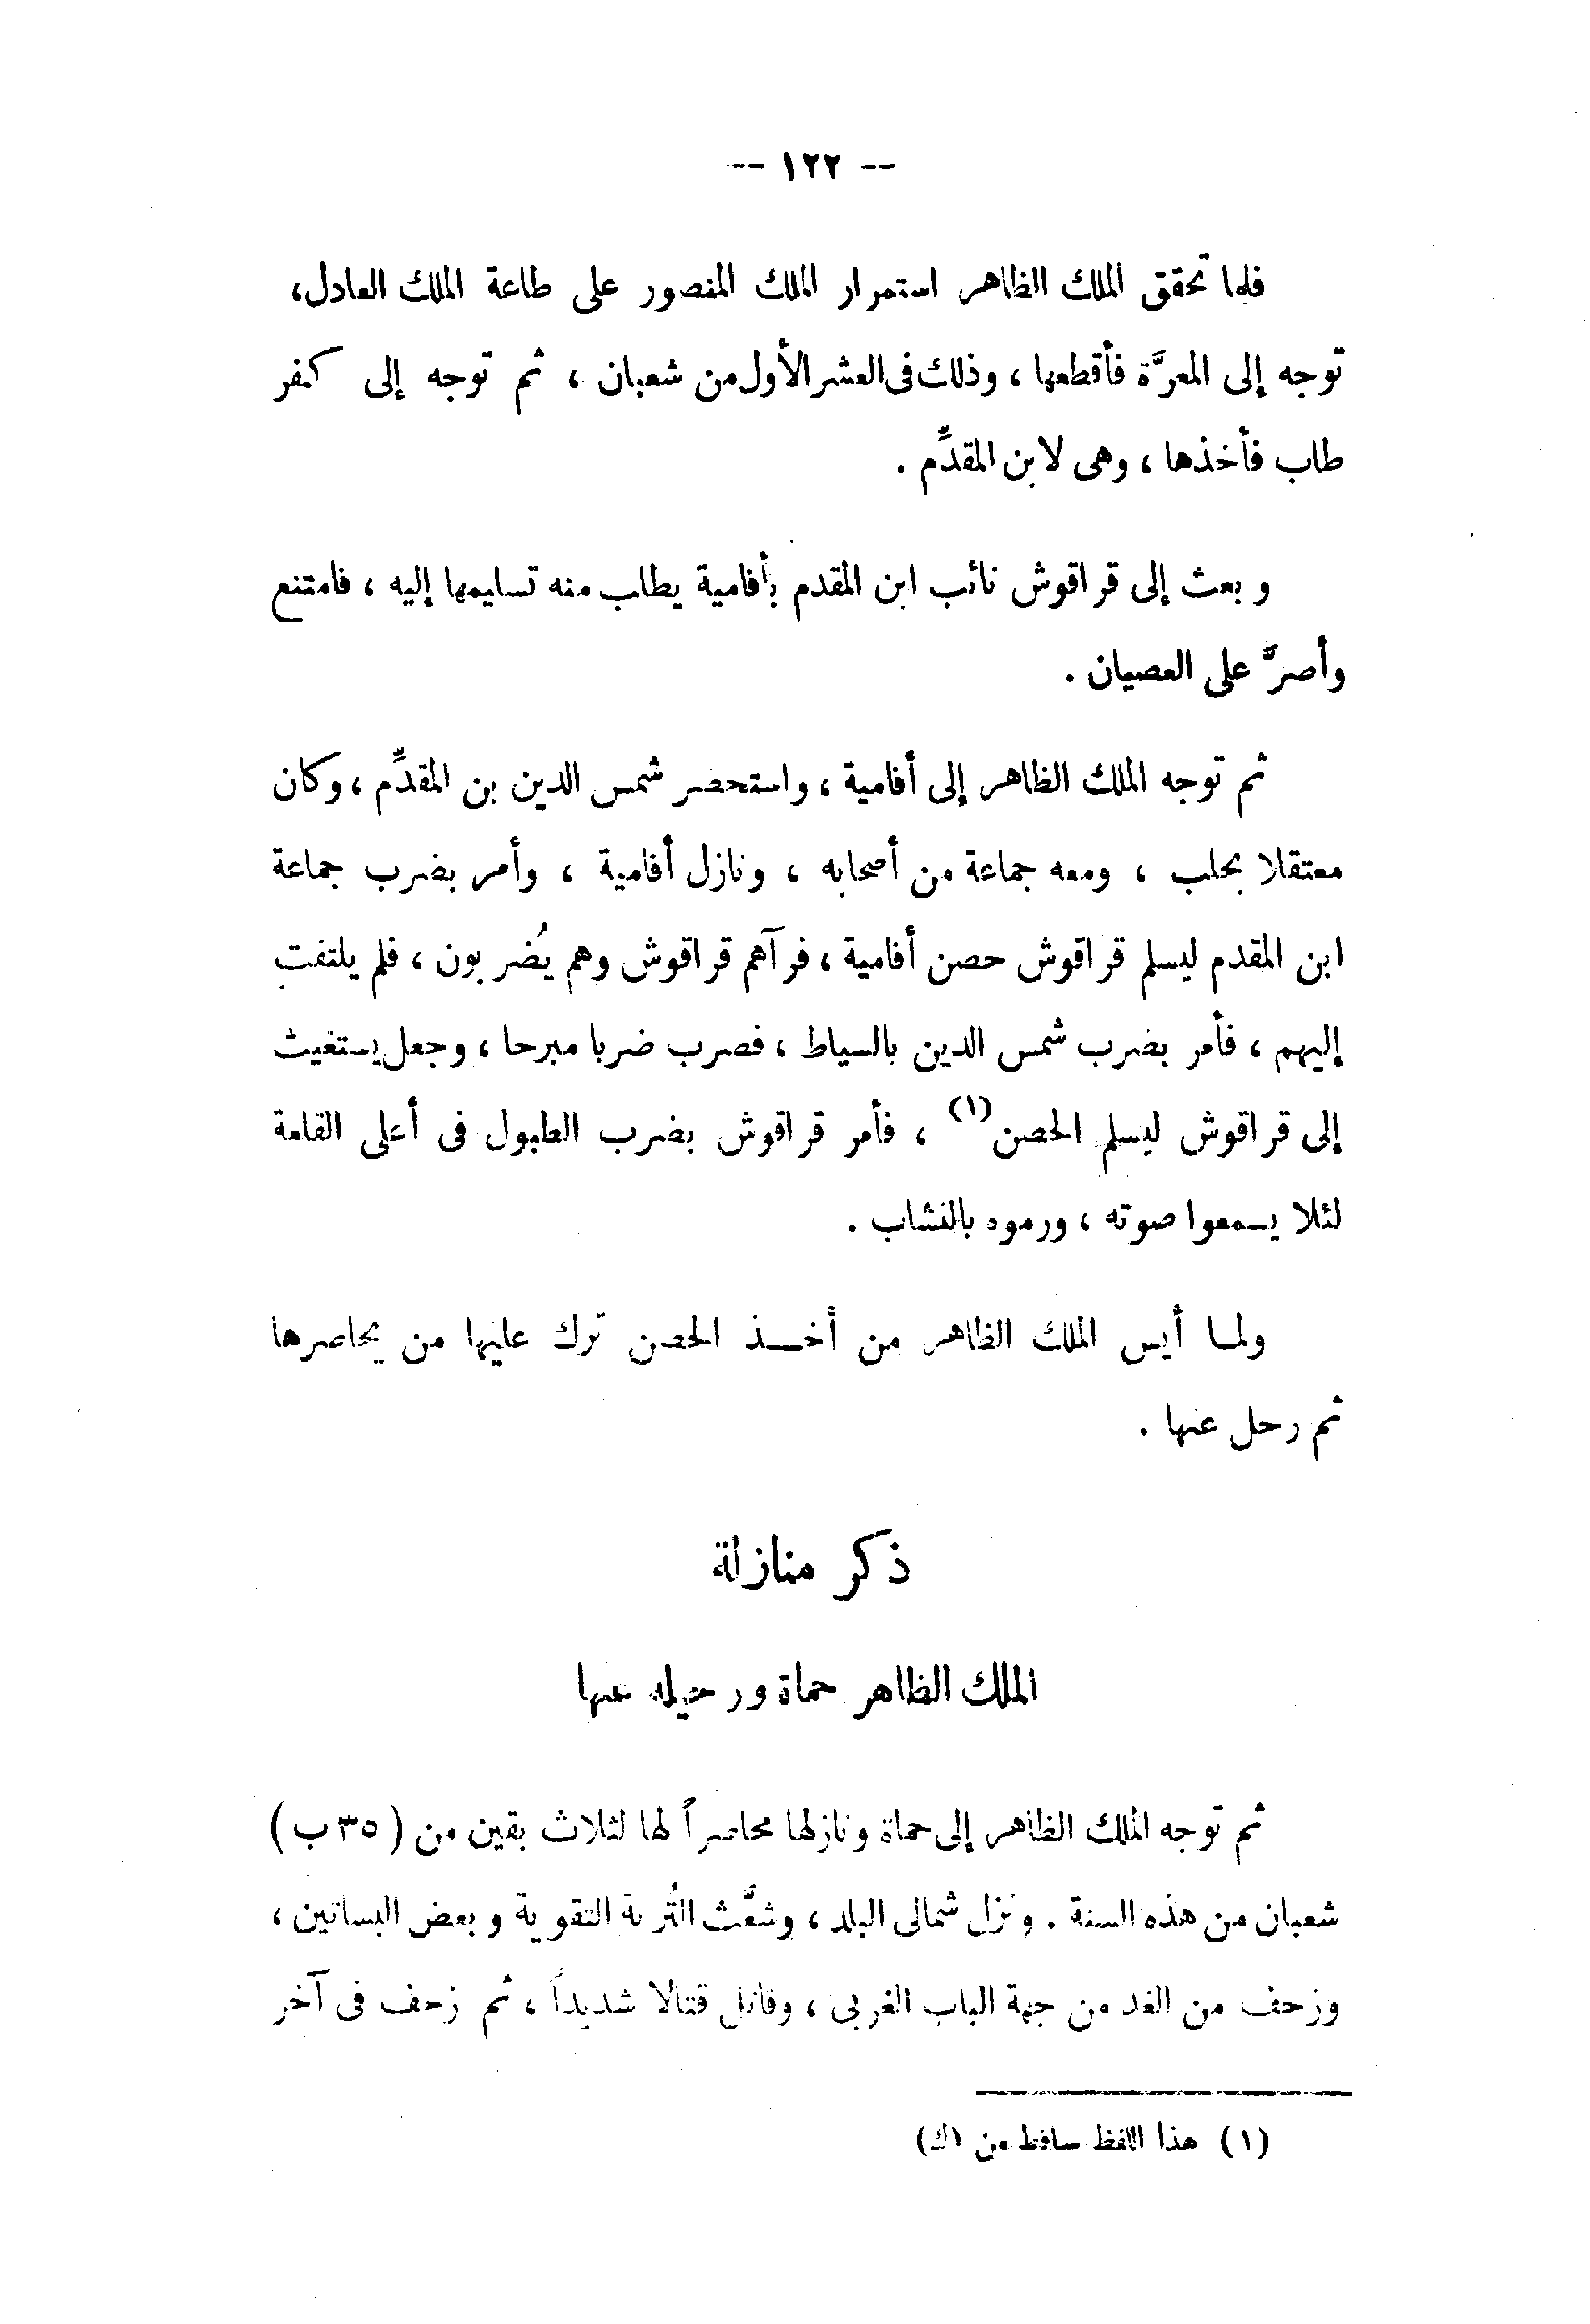 -- ١٢٢ --
فلما تحقق الملك الظاهر استمرار الملك المنصور على طاعة الملك العادل،
توجه إلى المعرَّة فأقطعها ، وذلك فى العشر الأول من شعبان ، ثم توجه إلى كفر
طاب فأخذها ، وهى لابن المقدِّم .
وبعث إلى قراقوش نائب ابن المقدم بأفامية يطلب منه تسليمها إليه ، فامتنع
وأصرَّ على العصيان .
ثم توجه الملك الظاهر إلى أفامية ، واستحضر شمس الدين بن المقدِّم ، وكان
معتقلا بحلب ، ومعه جماعة من أصحابه ، ونازل أفامية ، وأمر بضرب جماعة
ابن المقدم ليسلم قراقوش حصن أفامية ، فرآهم قراقوش وهم يُضربون ، فلم يلتفت
إليهم ، فأمر بضرب شمس الدين بالسياط ، فضرب ضربا مبرحا ، وجعل يستغيث
إلى قراقوش ليسلم الحصن (١) ، فأمر قراقوش بضرب الطبول فى أعلى القلعة
لئلا يسمعوا صوته ، ورموه بالنشاب .
ولمـا أيس الملك الظاهر من أخــذ الحصن ترك عليها من يحاصرها
ثم رحل عنها .
ذكر منازلة
الملك الظاهر حماة ورحيله عنها
ثم توجه الملك الظاهر إلى حماة ونازلها محاصراً لها لثلاث بقين من ( ٣٥ ب )
شعبان من هذه السنة . ونزل شمالى البلد ، وشعَّث التُربة التقوية وبعض البساتين ،
وزحف من الغد من جهة الباب الغربى ، وقاتل قتالا شديداً ، ثم زحف فى آخر
(١) هذا اللفظ ساقط من (ك)